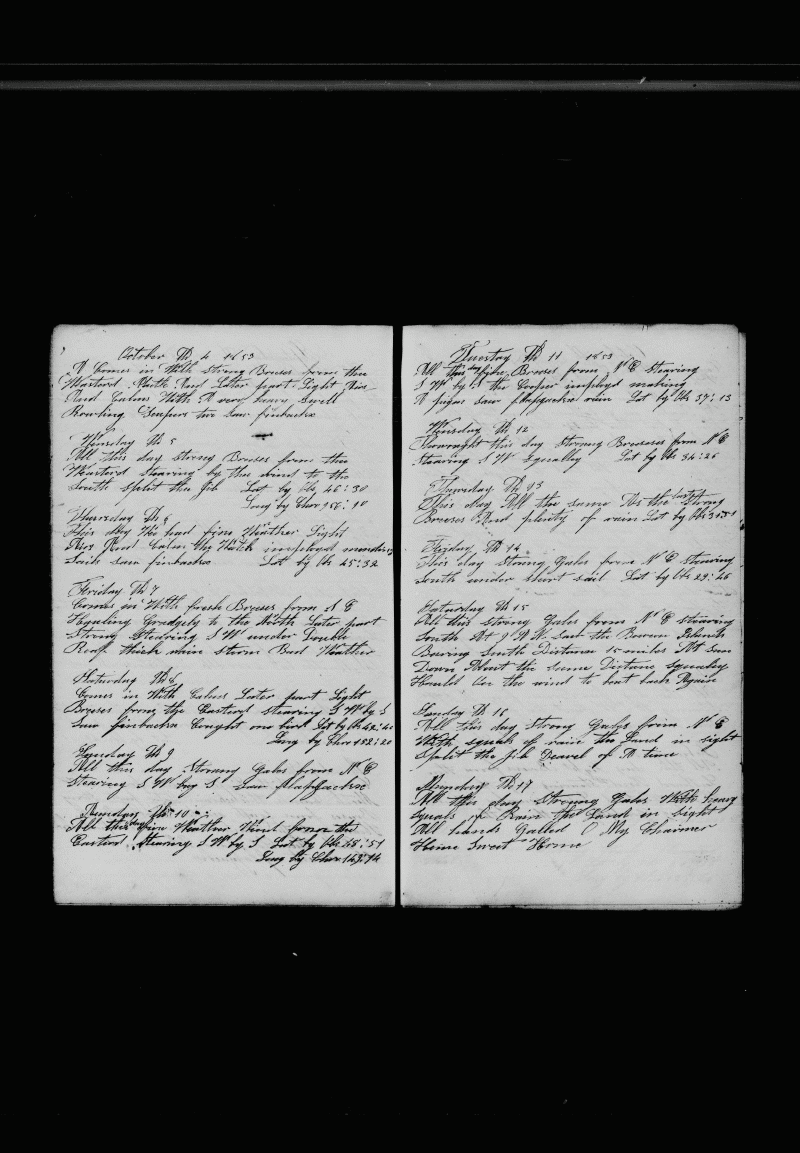 October Th 4 1853
A Comes in With Strong Breses from the
Wastard Middle And Later part Light Airs
And Calms With A very heavy Swell
Rowling Seapes two Saw finbacks
Wensday Th 5
All this day strong Breses from the
Wastard Stearing by the wind to the
South Split the Jib Lat by Ob 46:30
Long by Chro 156:10
Thursday Th 6
This day We had fine Weather Light
Airs And Calms the Watch imployd mending
Sails saw finbacks Lat by Ob 45:32
Friday Th 7
Comes in With fresh Breses from S E
Hauling Gradgely to the North Later part
Strong Stearing S W under Double
Reaf thick rain storm Bad Weather
Saturday Th 8
Comes in With Calms Later part Light
Breses from the Eastard stearing S W by S
Saw finbacks Caught one bird Lat by Ob 42:40
Long by Chro 152:20
Sunday Th 9
All this day Strong Gales from N E
Stearing S W by S Saw Blaffsachs
Munday Th 10
All this day fine Weather Wind from the
Eastard Stearing S W by S Lat by Ob 38:51
Long by Chro 149:14
Tuesday Th 11 1853
All this day fine Breses from N E Stearing
S W by S the Cooper imployd making
A pigus saw rain Lat by Ob 37:13
Wensday Th 12
Thowought this day Strong Breeses from N E
Stearing S W Squalley Lat by Ob 34:26
Thursday Th 13
This day All the same As the last Strong
Breses And plenty of rain Lat by Ob 31:51
Friday Th 14
This day Strong Gales from N E stearing
South under short sail Lat by Ob 29:46
Saturday Th 15
All this strong Gales from N E stearing
South At 9 A M saw the Bonen Islands
Bearing South Distance 15 miles At Sun
Down About the same Distance Squaley
Hauld On the wind to beat back Again
Sunday Th 16
All this day Strong Gales from N E
With squals of raine the Land in sight
Split the jib Deavel of A time
Munday Th 17
All this day Strong Gales With heavy
squals of Rain the Land in sight
All hands Galled O My Chaimer
Home Sweet Home